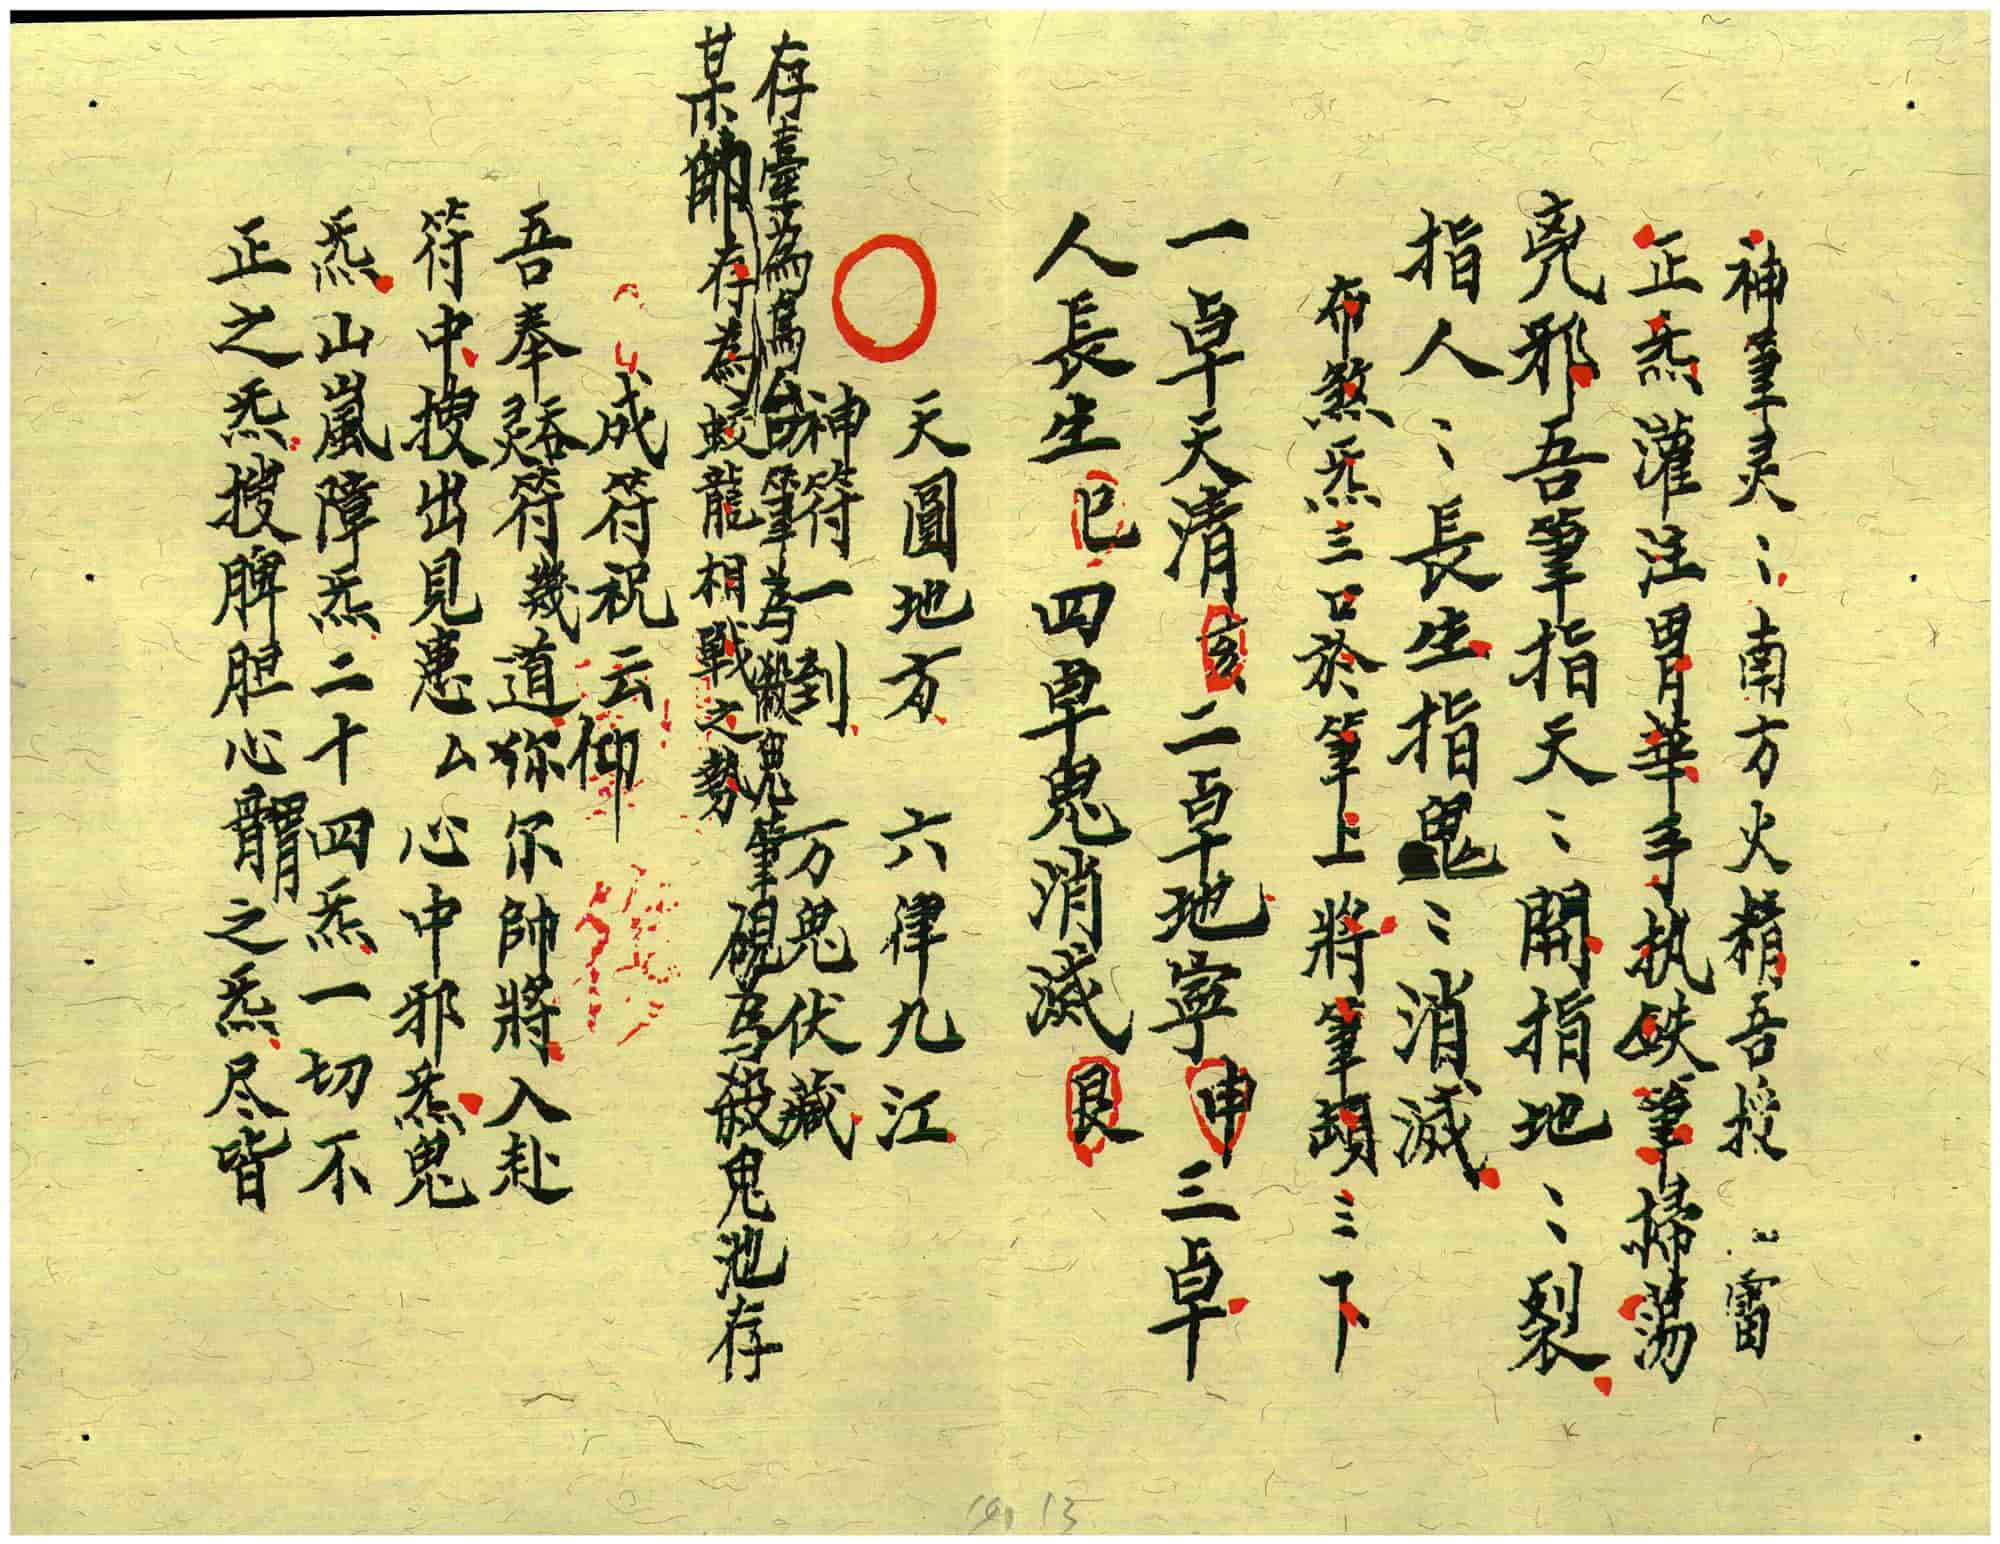 神筆灵〻南方火精吾授 雷
正炁灌注胃華手执鉄筆掃蕩
兇邪吾筆指天〻開指地〻裂
指人〻長生指鬼〻消滅
布煞炁三口於筆上將筆頓三下
一卓天清亥二卓地寧申三卓
人長生巳四卓鬼消滅艮
天圓地方 六律九江
神符一到 万鬼伏藏
存臺為筆為鬼筆硯為殺鬼池存
某師存為蛟龍相戰之勢
成符祝云仰
吾奉灵符幾道弥尔帥將入赴
符中搜出見患厶心中邪炁鬼
炁山嵐障炁二十四炁一切不
正之炁搜脾胆心之炁尽皆
14, 13